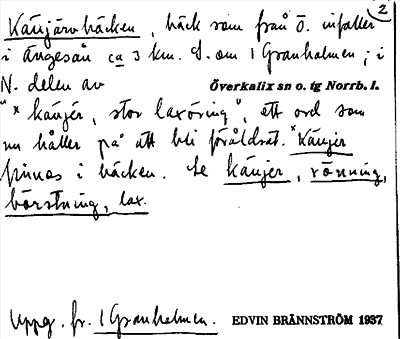 2
Känjärvbäcken, bäck som från Ö. infaller
i Ängesån ca 3 km. S. om 1 Granholmen; i
N. delen av Överkalix sn o. tg Norrb. l.
"x känjer, stor laxöring", ett ord som
nu håller på att bli föråldrat. x Känjer
finnes i bäcken. Se känjer, rönning,
börstning, lax.
Uppg. fr. 1 Granholmen. EDVIN BRÄNNSTRÖM 1937